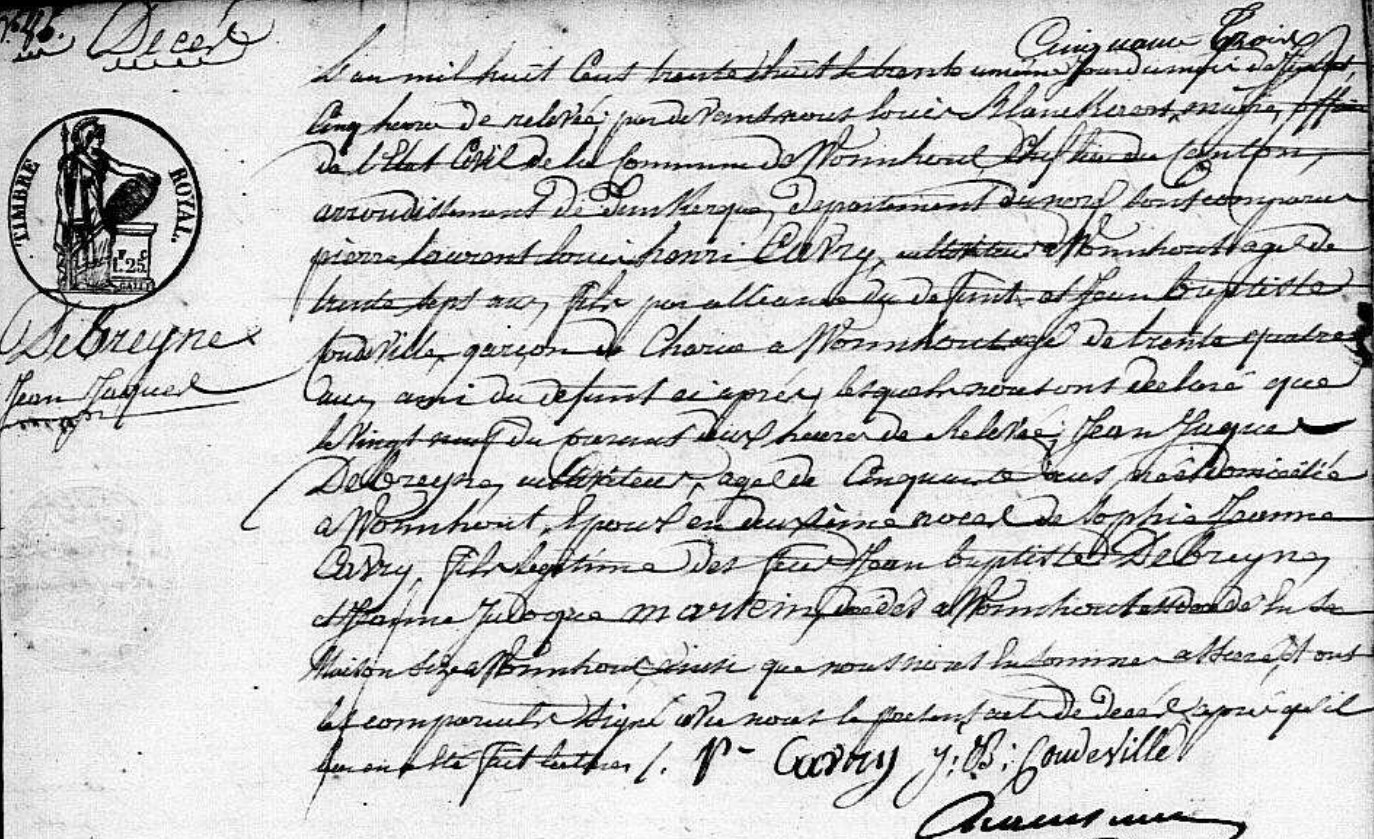 N.° 46. Décès
Cinquante Trois
L'an mil huit Cent trente huit le trente unième jour du mois de juillet,
Cinq heures de relevée, par devant nous louis Blanckaert, maire, officier
de l'Etat Civil de la Commune de Wormhout, Chef lieu du Canton,
arrondissement de Dunkerque, département du nord sont comparus
pierre laurent louis henri Cavry, cultivateur a Wormhout agé de
trente sept ans, fils par alliance du defunt, et Jean baptiste
Coudeville, garçon de Charue a Wormhout agé de trente quatre
ans, ami du defunt ci après, lesquels nous ont declaré que
le vingt neuf du courant deux heures de Relevée, Jean Jacques
Debreyne, cultivateur, agé de Cinquante ans, né et domicilié
a Wormhout, Epoux en deuxième noces de Sophie Jeanne
Cavry, fils legitime des feux Jean baptiste Debreyne,
et Jeanne Judoque martein, décédés a Wormhout est décédé En sa
Maison Size a Wormhout, ainsi que nous nous En sommes assuré, et ont
les comparants Signé avec nous le présent acte de décès après qu'il
leur en a été fait lecture /. Pre Cavry J: B: Coudeville
TIMBRE ROYAL.
F. C
1.25
Debreyne
Jean Jacques